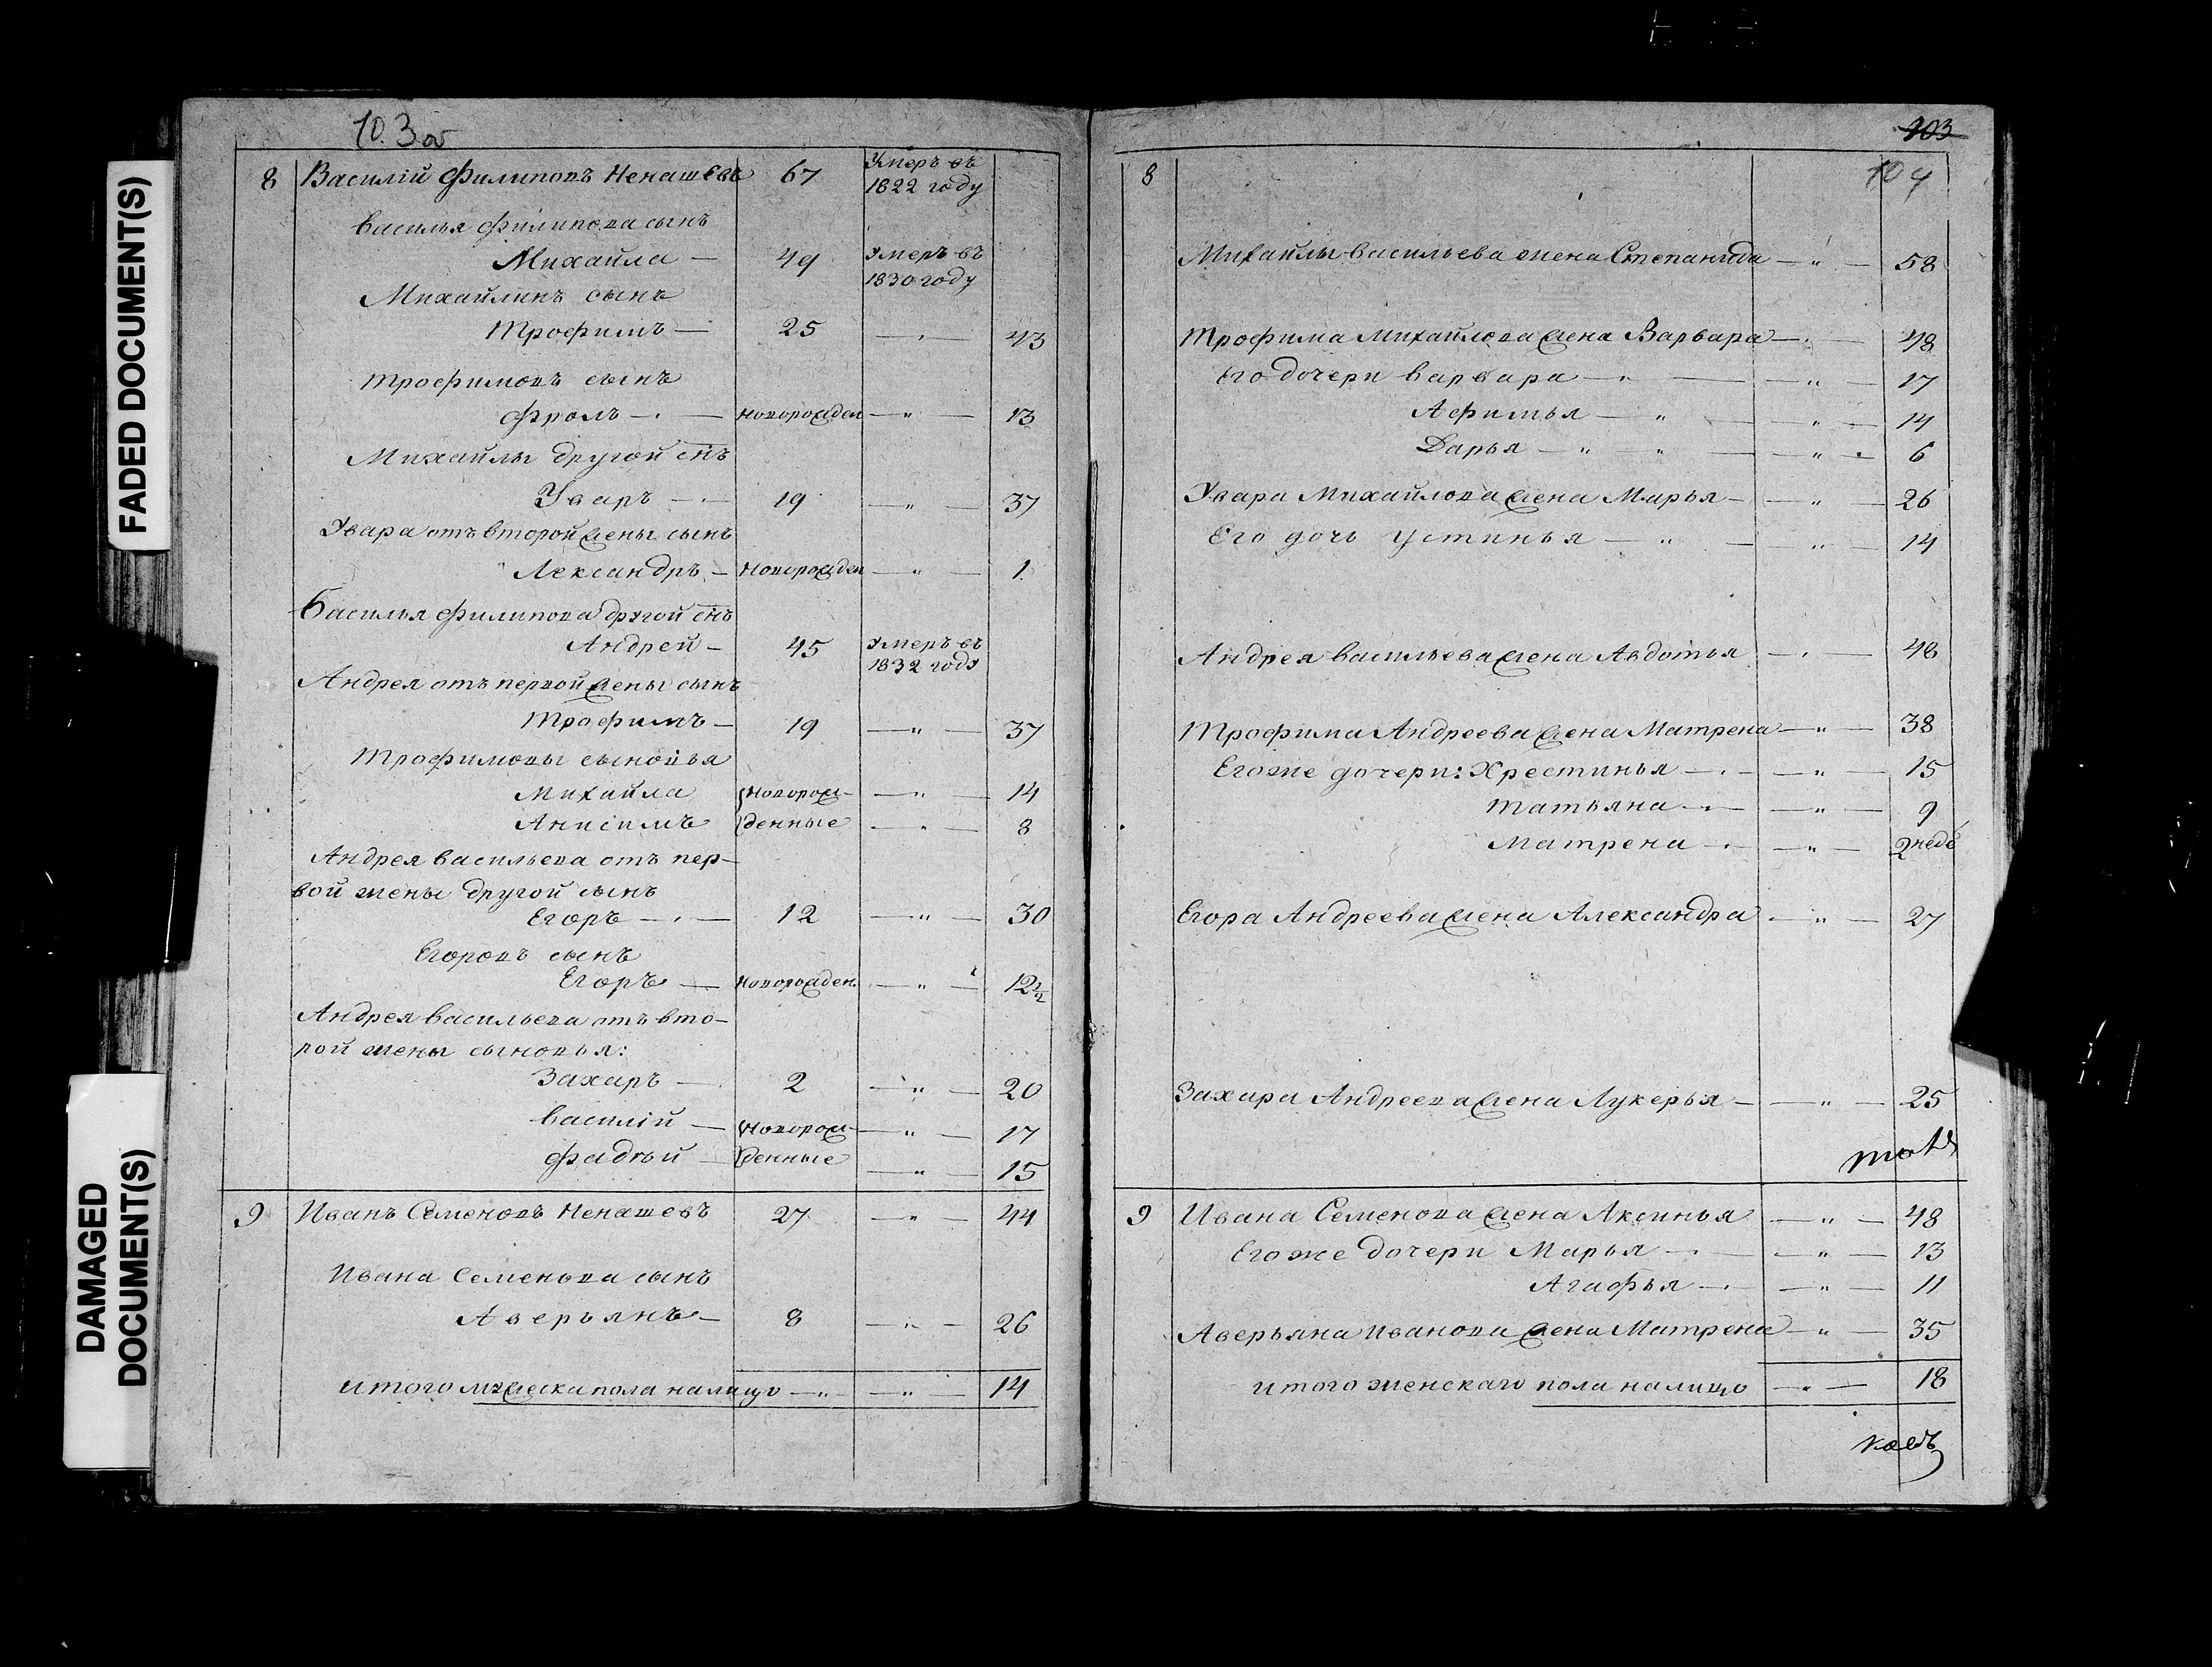 FADED DOCUMENT(S)
DAMAGED DOCUMENT(S)
8 Василій Филиповъ Ненашевъ 67 Умеръ въ 1822 году
Василья Филипова сынъ
Михайла — 49 Умеръ въ 1830 году
Михайлинъ сынъ
Трофимъ — 25 — 43
Трофимовъ сынъ
Фролъ — новорожден — " — 13
Михайлы другой снъ
Уваръ — 19 — " — 37
Увара отъ второй жены сынъ
Лександръ — новорожден — " — 1
Василья Филипова другой снъ
Андрей — 45 Умеръ въ 1832 году
Андрея отъ первой жены сынъ
Трофимъ — 19 — " — 37
Трофимовы сыновья
Михайла новорож- — " — 14
Анисимъ денные — " — 8
Андрея Васильева отъ пер-
вой жены другой сынъ
Егоръ — 12 — " — 30
Егоровъ сынъ
Егоръ — новорожден — " — 12½
Андрея Васильева отъ вто-
рой жены сыновья:
Захаръ — 2 — " — 20
Василій — новорож- — " — 17
Фадѣй денные — " — 15
9 Иванъ Семеновъ Ненашевъ 27 — " — 44
Ивана Семенова сынъ
Аверьянъ — 8 — " — 26
итого мужеска пола на лицо — " — " — 14
103
104
8
Михайлы Васильева жена Степанида — " — 58
Трофима Михайлова жена Варвара — 48
Его дочери Варвара — " — 17
Афимья — " — 14
Дарья — " — 6
Увара Михайлова жена Марья — " — 26
Его дочь Устинья — " — 14
Андрея Васильева жена Авдотья — 48
Трофима Андреева жена Матрена — " — 38
Егоже дочери: Хрестинья — " — 15
Татьяна — " — 9
Матрена — " — 2 недѣ
Егора Андреева жена Александра — " — 27
Захара Андреева жена Лукерья — " — 25
9 Ивана Семенова жена Аксинья — " — 48
Егоже дочери Марья — " — 13
Агафья — " — 11
Аверьяна Иванова жена Матрена — " — 35
итого женскаго пола на лицо — " — 18